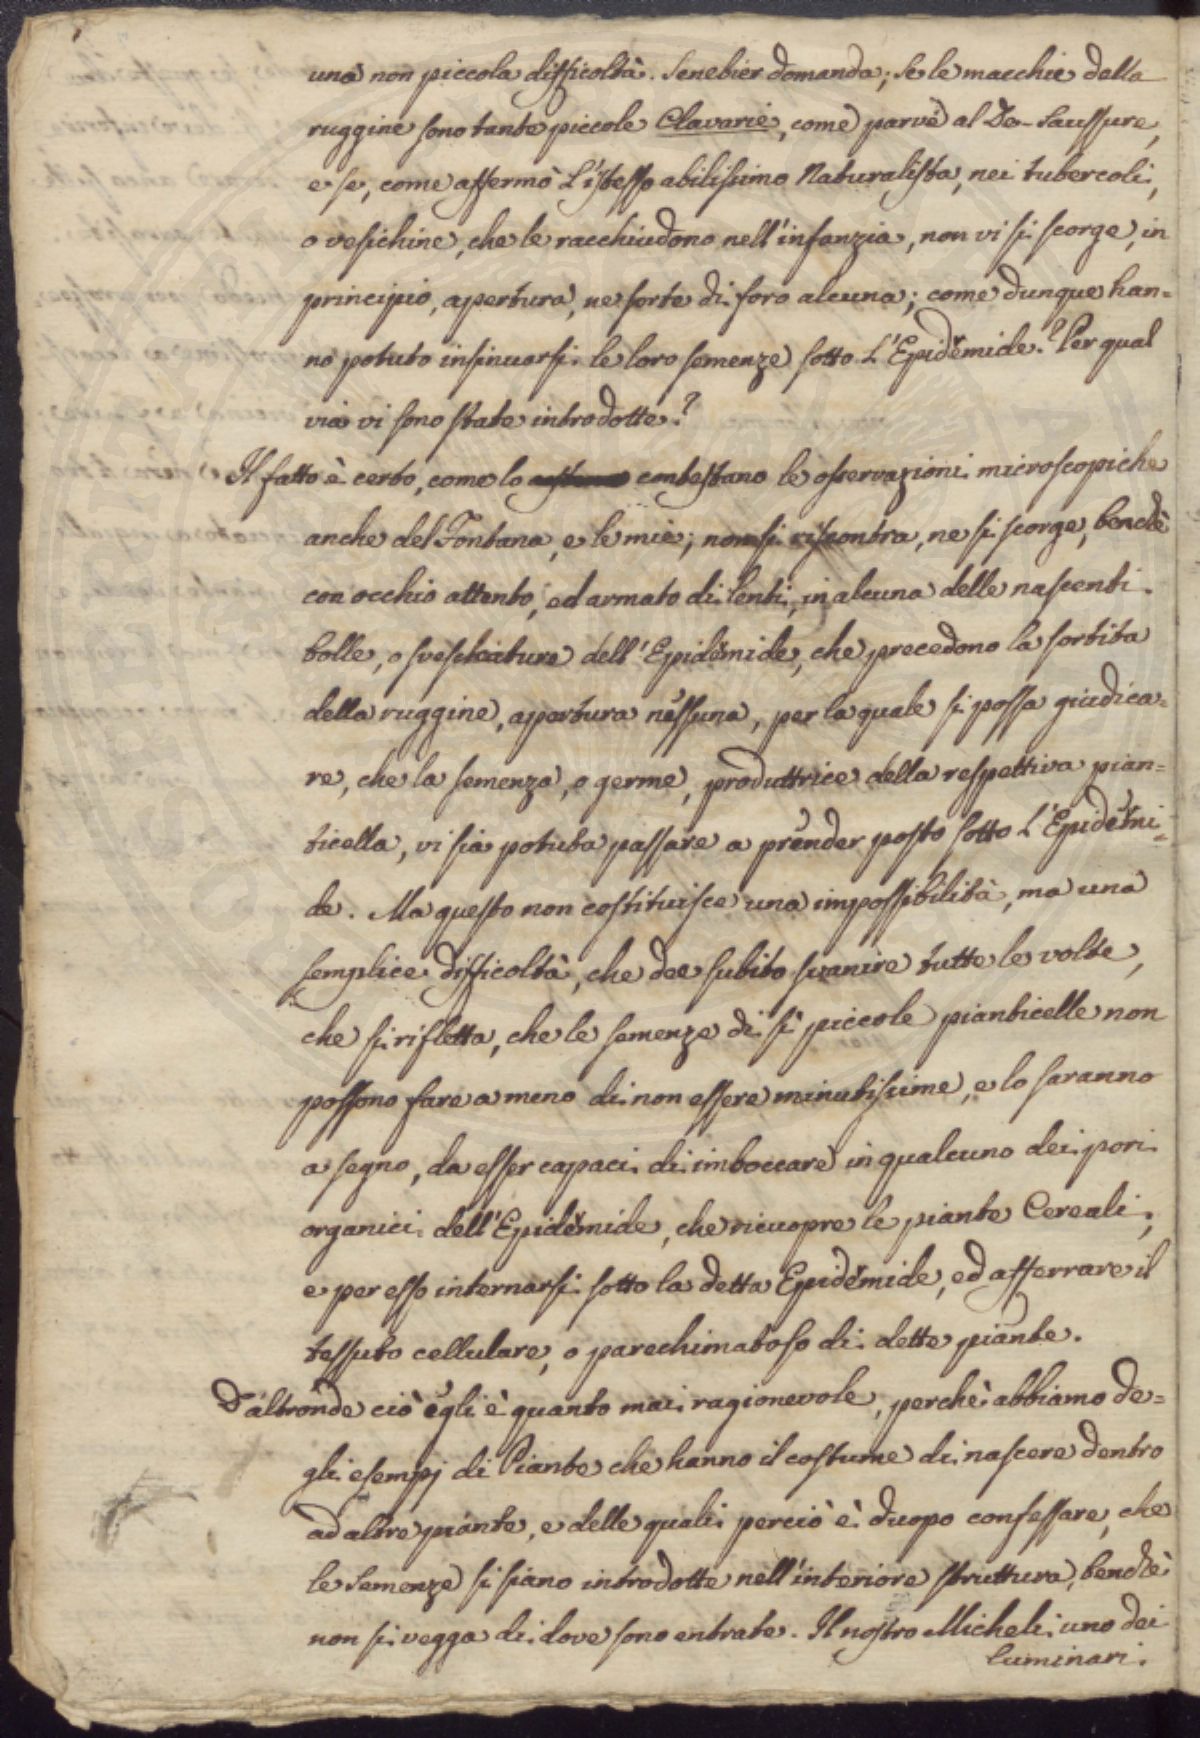 una non piccola difficoltà. Senebier domanda; se le macchie della
ruggine sono tante piccole Clavarie, come parve al De-Saussure,
e se, come affermò l'istesso abilissimo Naturalista, nei tubercoli,
o vesichine, che le racchiudono nell'infanzia, non vi si scorge, in
principio, apertura, ne sorte di foro alcuna; come dunque han=
no potuto insinuarsi le loro semenze sotto l'Epidèmide? Per qual
via vi sono state introdotte?
Il fatto è certo, come lo contestano le osservazioni microscopiche
anche del Fontana, e le mie; non si riscontra, ne si scorge, benchè
con occhio attento, ed armato di lenti, in alcuna delle nascenti
bolle, o svesciature dell'Epidèmide, che precedono la sortita
della ruggine, apertura nessuna, per la quale si possa giudica=
re, che la semenza, o germe, produttrice della respettiva pian=
ticella, vi sia potuta passare a prender posto sotto l'Epidèmi=
de. Ma questo non costituisce una impossibilità, ma una
semplice difficoltà, che dee subito svanire tutte le volte,
che si rifletta, che le semenze di sì piccole pianticelle non
possono fare a meno di non essere minutissime, e lo saranno
a segno, da esser capaci di imboccare in qualcuno dei pori
organici dell'Epidèmide, che ricuopre le piante Cereali,
e per esso internarsi sotto la detta Epidèmide, ed afferrare il
tessuto cellulare, o parechimatoso di dette piante.
D'altronde ciò egli è quanto mai ragionevole, perchè abbiamo de=
gli esempj di Piante che hanno il costume di nascere dentro
ad altre piante, e delle quali perciò è duopo confessare, che
le semenze si siano introdotte nell'interiore struttura, benchè
non si vegga di dove sono entrate. Il nostro Micheli uno dei
luminari